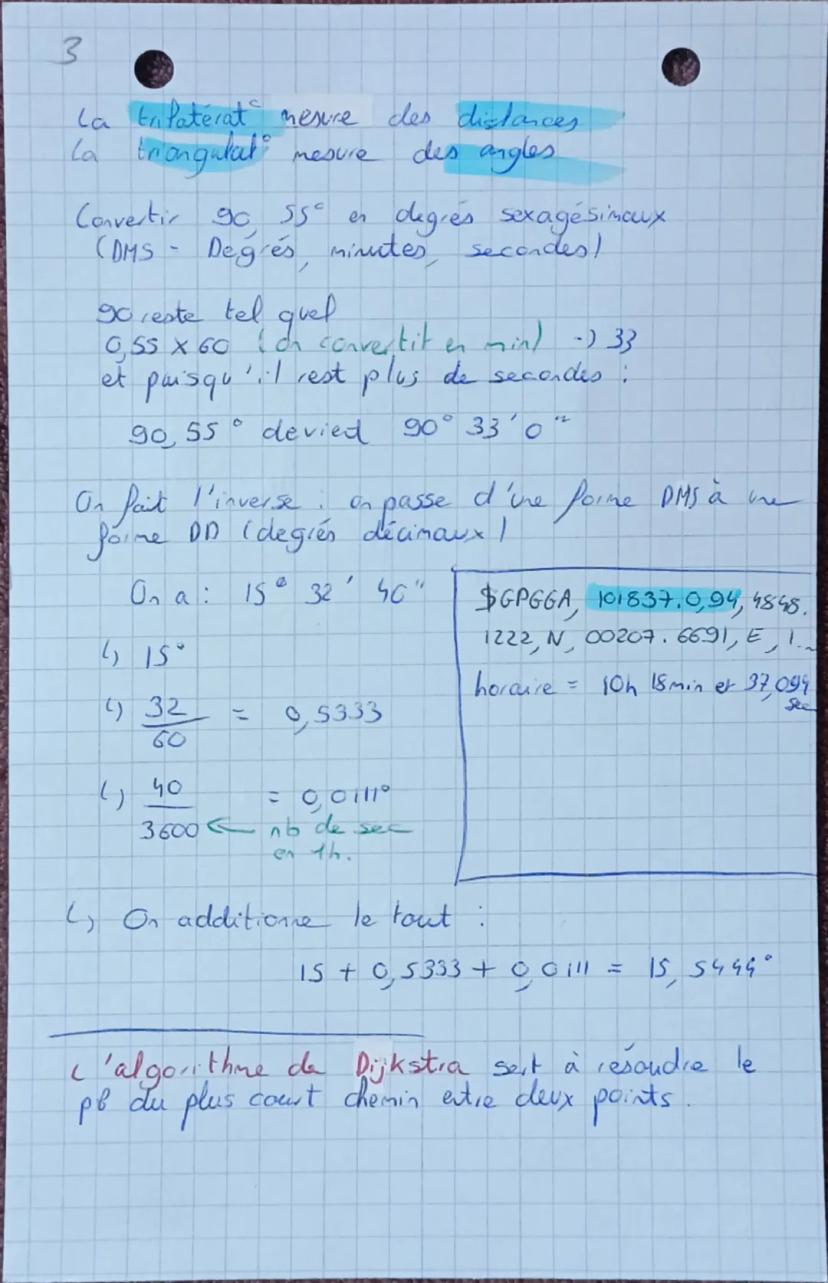 3
La trilatérat° mesure des distances
La triangulat° mesure des angles
Convertir 90,55° en degrés sexagésimaux
(DMS - Degrés, minutes, secondes)
90 reste tel quel
0,55 x 60 (on convertit en min) -> 33
et puisqu'il rest plus de secondes :
90,55° devied 90° 33' 0"
On fait l'inverse : on passe d'une forme DMS à une
forme DD (degrés décimaux)
On a : 15° 32' 40"
↳ 15°
↳ 32/60 = 0,5333
↳ 40/3600 = 0,0111°
← nb de sec
en 1h.
$GPGGA, 101837.0,94, 4848.
1222, N, 00207.6691, E, 1...
horaire = 10h 18min et 37,094
sec
↳ On additionne le tout :
15 + 0,5333 + 0,0111 = 15,5444°
L'algorithme de Dijkstra sert à résoudre le
pb du plus court chemin entre deux points.